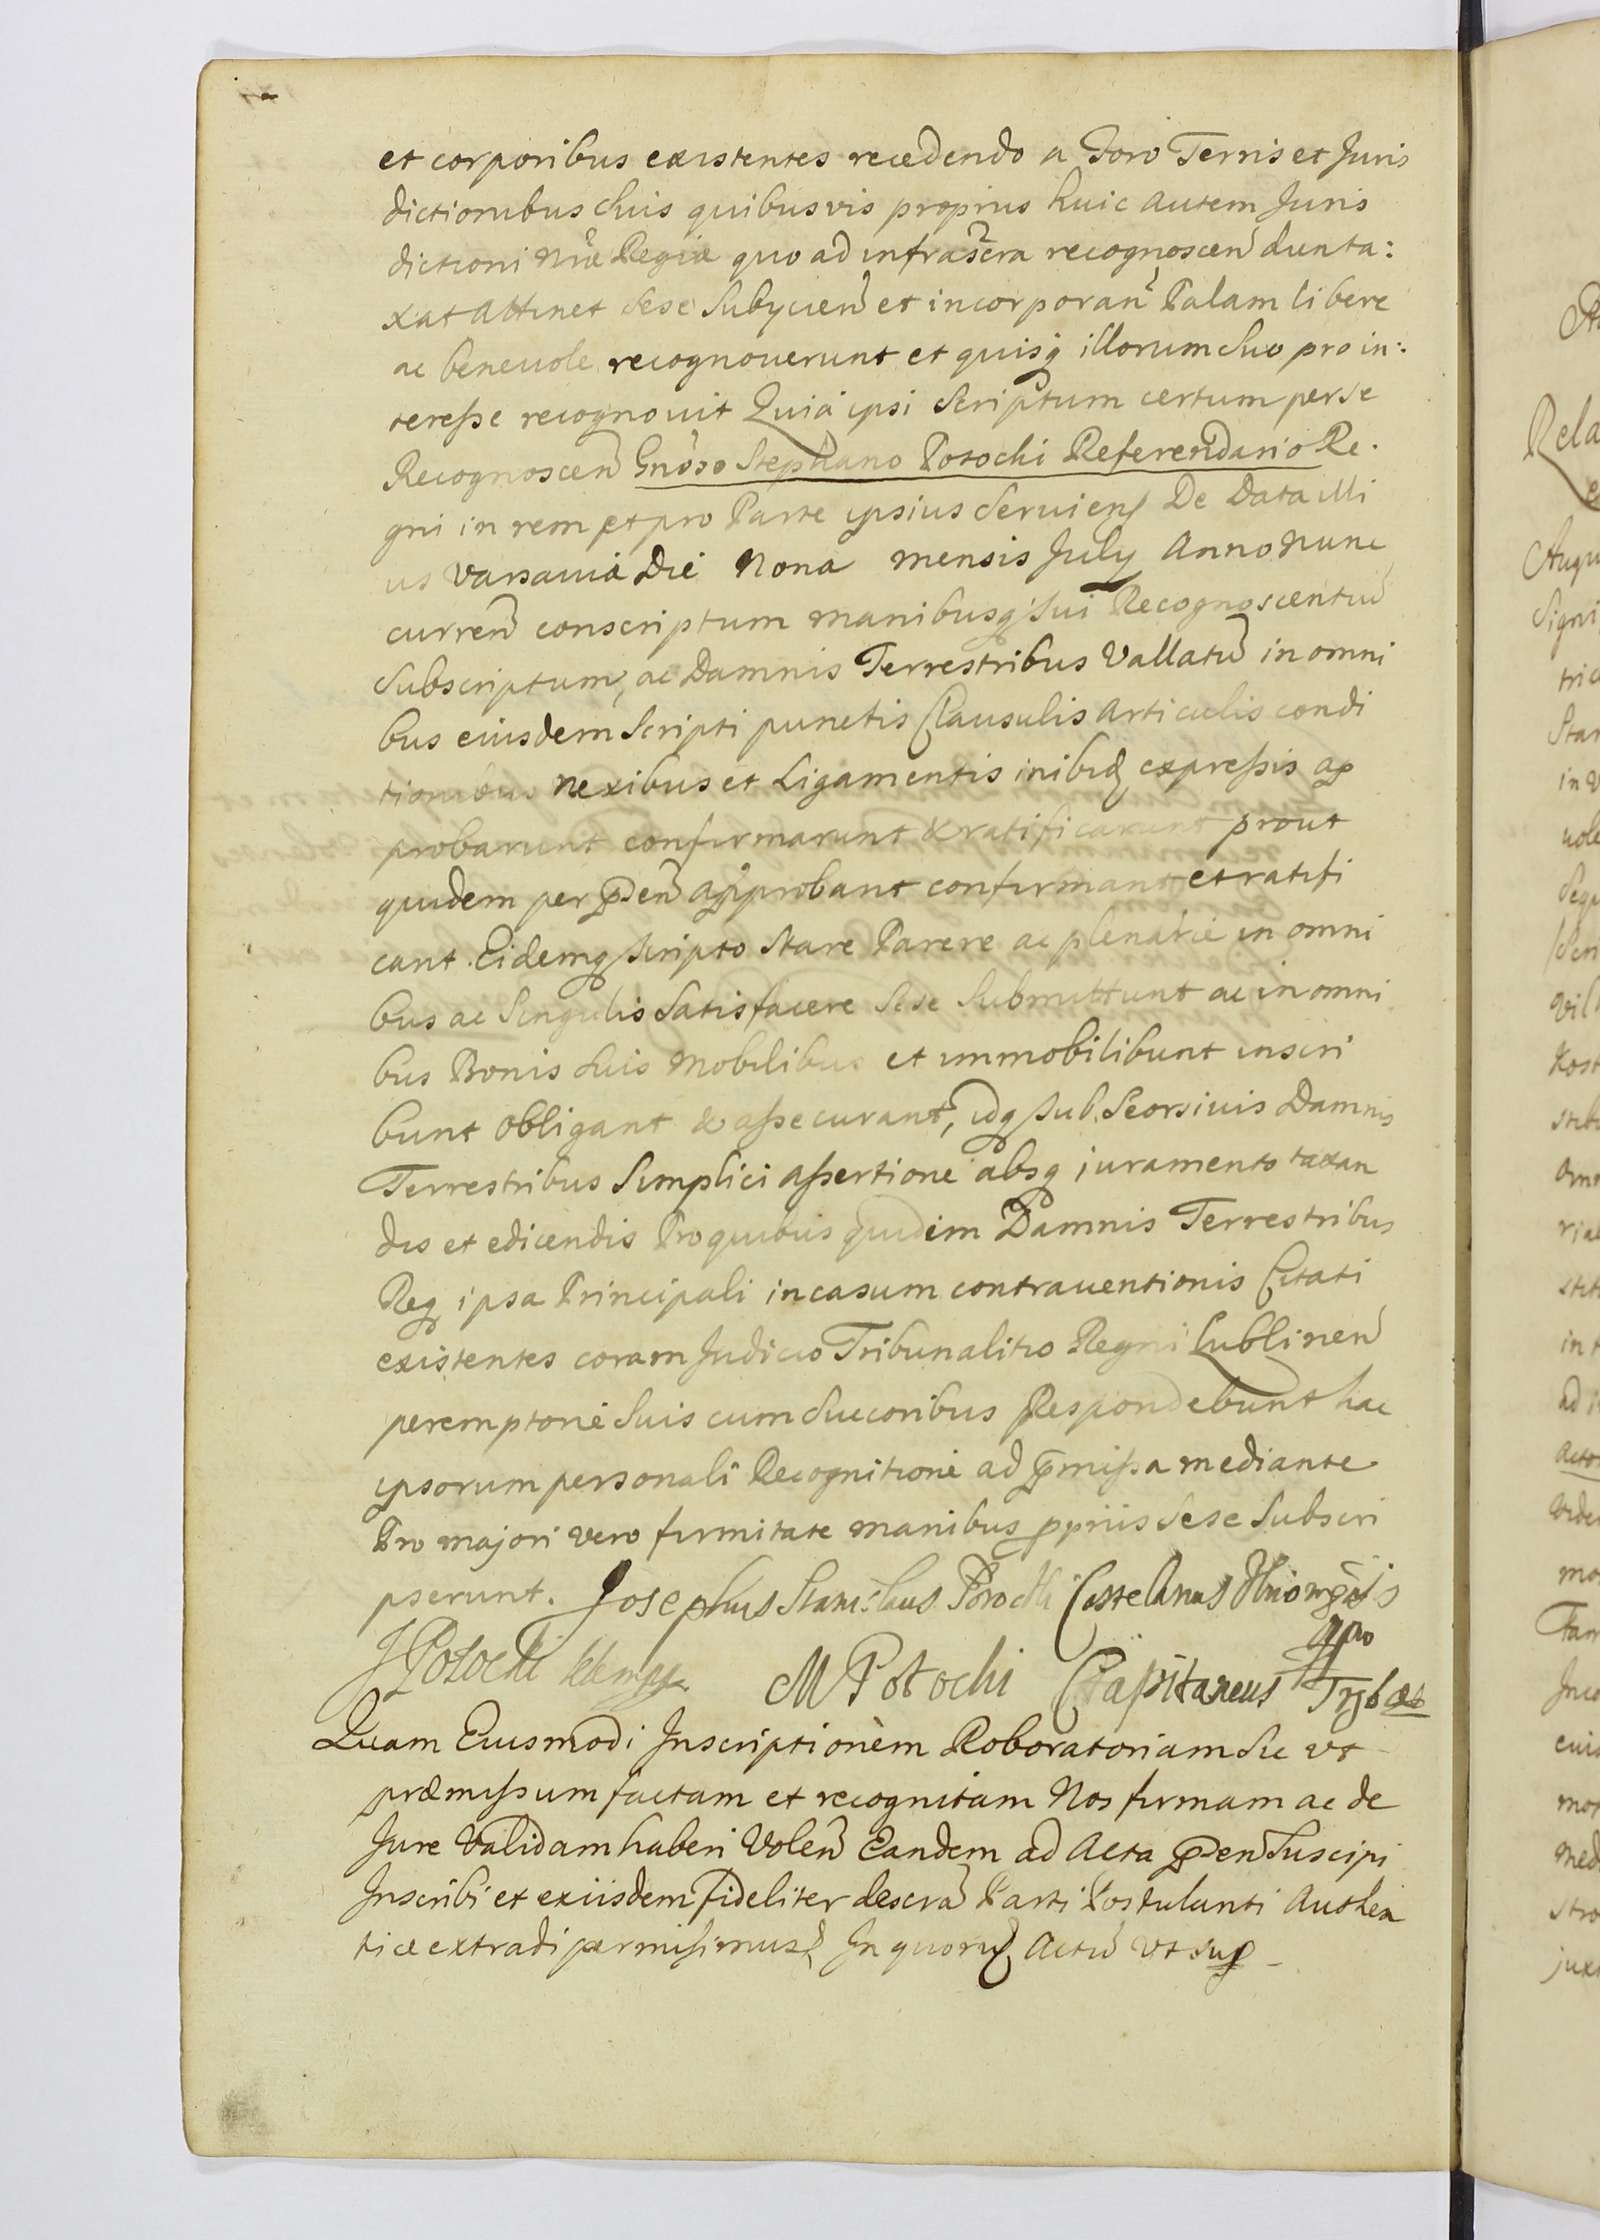 et corporibus existentes recedendo a Foro Terris et Juris
dictionibus suis quibusvis proprijs huic autem Juris
dictioni nr̃æ Regiæ quo ad infrascr̃a recognoscen̄ dunta:
xat attinet sese subycien̄ et incorporan̄ Palam libere
ac benevole recognouerunt et quisq́ illorum suo pro in:
teresse recognouit Quia ipsi Scriptum certum per se
Recognoscen̄ Gnoso Stephano Potocki Referendario Re.
gni in rem et pro Parte ipsius Seruiens De Data illi
us Varsauiæ Die Nona mensis July Anno nunc
curren̄ conscriptum manibusq́ sui Recognoscentiū
Subscriptum, ac Damnis Terrestribus Vallatū in omni
bus eiusdem Scripti punctis Clausulis Articulis condi
tionibus nexibus et Ligamentis inibiq́ expressis ap
probarunt confirmarunt & ratificarunt prout
quidem per p̃sen̄ approbant confirmant et ratifi
cant. Eidemq́ scripto Stare Parere ac plenarie in omni
bus ac Singulis Satisfacere Sese Submittunt ac in omni
bus Bonis suis mobilibus et immobilibunt inscri
bunt obligant & assecurant, idq́ sub Seorsiuis Damnis
Terrestribus Simplici assertione absq́ iuramento taxan
dis et edicendis Pro quibus quidem Damnis Terrestribus
Req́ ipsa Principali in casum contrauentionis Citati
existentes coram Judicio Tribunalitio Regni Lublinen̄
peremptorie Suis cum Succoribus Respondebunt hac
ipsorum personali Recognitione ad p̃missa mediante
Pro majori vero firmitate manibus pp̃riis Sese Subscri
pserunt. Josephus Stanislaus Potocki Castelanus
J Potocki M Potocki Capitaneus
Quam Eiusmodi Inscriptionem Roboratoriam Sic vt
præmissum factam et recognitam Nos firmam ac de
Jure Validam haberi Volen̄ Eandem ad Acta p̃sen̄ Suscipi
Inscribi et ex iisdem fideliter descrã Parti Postulanti Authen
tice extradi permisimus. In quorū Actū vt sup̱